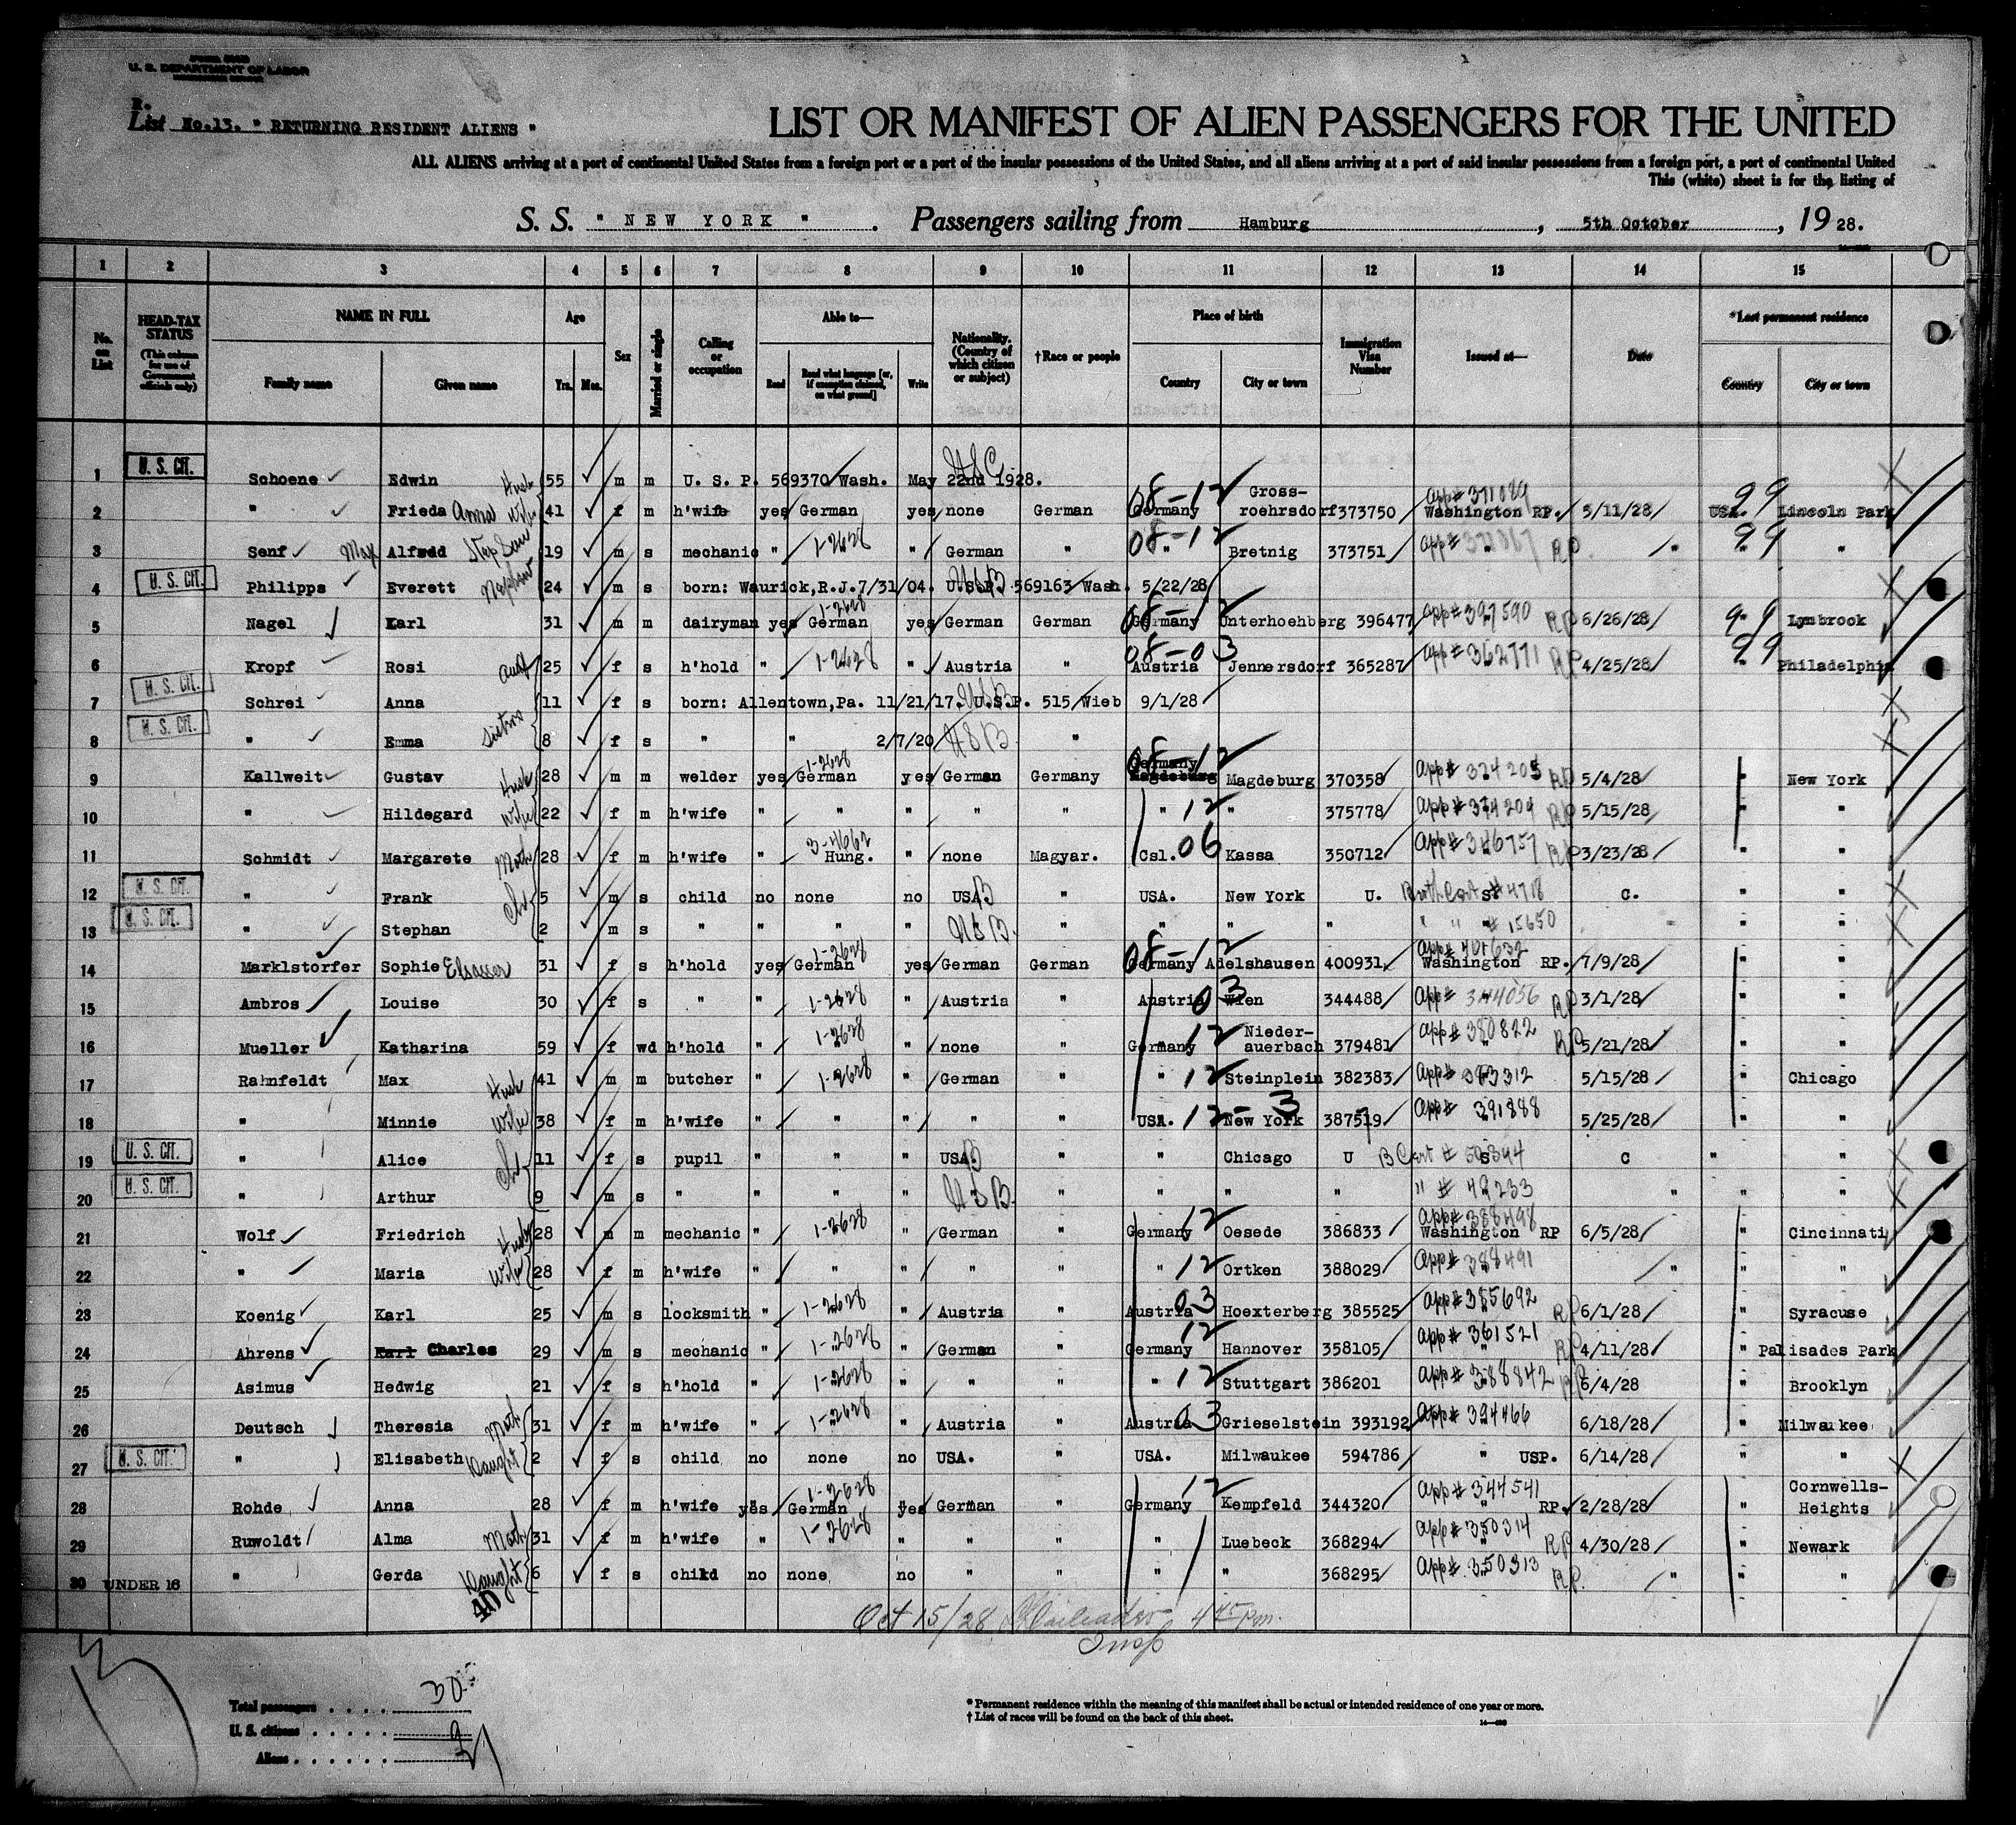 U. S. DEPARTMENT OF LABOR
R.
List No.13. " RETURNING RESIDENT ALIENS "
LIST OR MANIFEST OF ALIEN PASSENGERS FOR THE UNITED
ALL ALIENS arriving at a port of continental United States from a foreign port or a port of the insular possessions of the United States, and all aliens arriving at a port of said insular possessions from a foreign port, a port of continental United
This (white) sheet is for the listing of
S. S. " NEW YORK " . Passengers sailing from Hamburg , 5th October , 1928.
1 2 3 4 5 6 7 8 9 10 11 12 13 14 15
No. on List
HEAD-TAX STATUS (This column for use of Government officials only)
NAME IN FULL Family name Given name
Age Yrs. Mos.
Sex
Married or single
Calling or occupation
Able to— Read Read what language [or, if exemption claimed, on what ground] Write
Nationality. (Country of which citizen or subject)
†Race or people
Place of birth Country City or town
Immigration Visa Number
Issued at—
Date
*Last permanent residence Country City or town
1 U. S. CIT. Schoene Edwin Husb 55 m m U. S. P. 569370 Wash. May 22nd 1928. USC
2 " Frieda Anna Wife 41 f m h'wife yes German yes none German 08-12 Germany Gross-roehrsdorf 373750 App# 371089 Washington RP. 5/11/28 99 USA. Lincoln Park
3 Senf Max Alfredd Step Son 19 m s mechanic " 1-2628 " German " 08-12 " Bretnig 373751 App# RP " 99 " "
4 U. S. CIT. Philipps Everett Nephew 24 m s born: Waurick,R.J.7/31/04. U.S.P. 569163 Wash. 5/22/28 USB
5 Nagel Karl 31 m m dairyman yes German 1-2628 yes German German 08-12 Germany Unterhoehberg 396477 App# 397590 RP 6/26/28 99 " Lymbrook
6 Kropf Rosi Aunt 25 f s h'hold " 1-2628 " Austria " 08-03 Austria Jennersdorf 365287 App# 362771 RP 4/25/28 99 " Philadelphia
7 U. S. CIT. Schrei Anna 11 f s born: Allentown,Pa. 11/21/17. U.S.P. 515 Wieb 9/1/28 USB
8 U. S. CIT. " Emma Sisters 8 f s " " 2/7/20 USB "
9 Kallweit Gustav Husb 28 m m welder yes German 1-2628 yes German Germany 08-12 Germany Magdeburg Magdeburg 370358 App# 374205 RP 5/4/28 " New York
10 " Hildegard Wife 22 f m h'wife " " " " " " 12 " 375778 App# 374204 RP 5/15/28 " "
11 Schmidt Margarete Moth 28 f m h'wife " Hung. 3-4662 " none Magyar. Csl. 06 Kassa 350712 App# 346757 RP 3/23/28 " "
12 U. S. CIT. " Frank Ch 5 m s child no none no USA. B " USA. New York U. Birth Cert S # 4718 C. " "
13 U. S. CIT. " Stephan 2 m s " " " " USB " " " " " " # 15650 " " "
14 Marklstorfer Sophie Elsasser 31 f s h'hold yes German 1-2628 yes German German 08-12 Germany Adelshausen 400931 App# 401632 Washington RP. 7/9/28 " "
15 Ambros Louise 30 f s " " 1-2628 " Austria " Austria 03 Wien 344488 App# 344056 RP 3/1/28 " "
16 Mueller Katharina 59 f wd h'hold " 1-2628 " none " Germany 12 Nieder-auerbach 379481 App# 380822 RP 5/21/28 " "
17 Rahnfeldt Max Husb 41 m m butcher " 1-2628 " German " " 12 Steinplein 382383 App# 383312 5/15/28 " Chicago
18 " Minnie Wife 38 f m h'wife " " " " " USA. 12-3 New York 387519 App# 391888 5/25/28 " "
19 U. S. CIT. " Alice Ch 11 f s pupil " " " USA. B " " Chicago U B Cert # 50344 S C " "
20 U. S. CIT. " Arthur 9 m s " " " " USB " " " " " # 49233 " " "
21 Wolf Friedrich Husb 28 m m mechanic " 1-2628 " German " Germany 12 Oesede 386833 App# 388498 Washington RP 6/5/28 " Cincinnati
22 " Maria Wife 28 f m h'wife " " " " " " 12 Ortken 388029 App# 388491 " " "
23 Koenig Karl 25 m s locksmith " 1-2628 " Austria " Austria 03 Hoexterberg 385525 App# 385692 RP 6/1/28 " Syracuse
24 Ahrens Karl Charles 29 m s mechanic " 1-2628 " German " Germany 12 Hannover 358105 App# 361521 RP 4/11/28 " Palisades Park
25 Asimus Hedwig 21 f s h'hold " 1-2628 " " " " 12 Stuttgart 386201 App# 388842 RP 6/4/28 " Brooklyn
26 Deutsch Theresia Moth 31 f m h'wife " 1-2628 " Austria " Austria 03 Grieselstein 393192 App# 394466 6/18/28 " Milwaukee
27 U. S. CIT. " Elisabeth Daught 2 f s child no none no USA. " USA. Milwaukee 594786 " USP. 6/14/28 " "
28 Rohde Anna 28 f m h'wife yes German 1-2628 yes German " Germany 12 Kempfeld 344320 App# 344541 RP. 2/28/28 " Cornwells-Heights
29 Ruwoldt Alma Moth 31 f m h'wife " 1-2628 " " " " Luebeck 368294 App# 350314 RP 4/30/28 " Newark
30 UNDER 16 " Gerda Daught 6 f s child no none no " " " " 368295 App# 350313 RP. " " "
40
Oct 15/28 4 45 pm.
Insp
Total passengers . . . . 30
U. S. citizens . . . . . 9
Aliens . . . . . . 21
* Permanent residence within the meaning of this manifest shall be actual or intended residence of one year or more.
† List of races will be found on the back of this sheet.